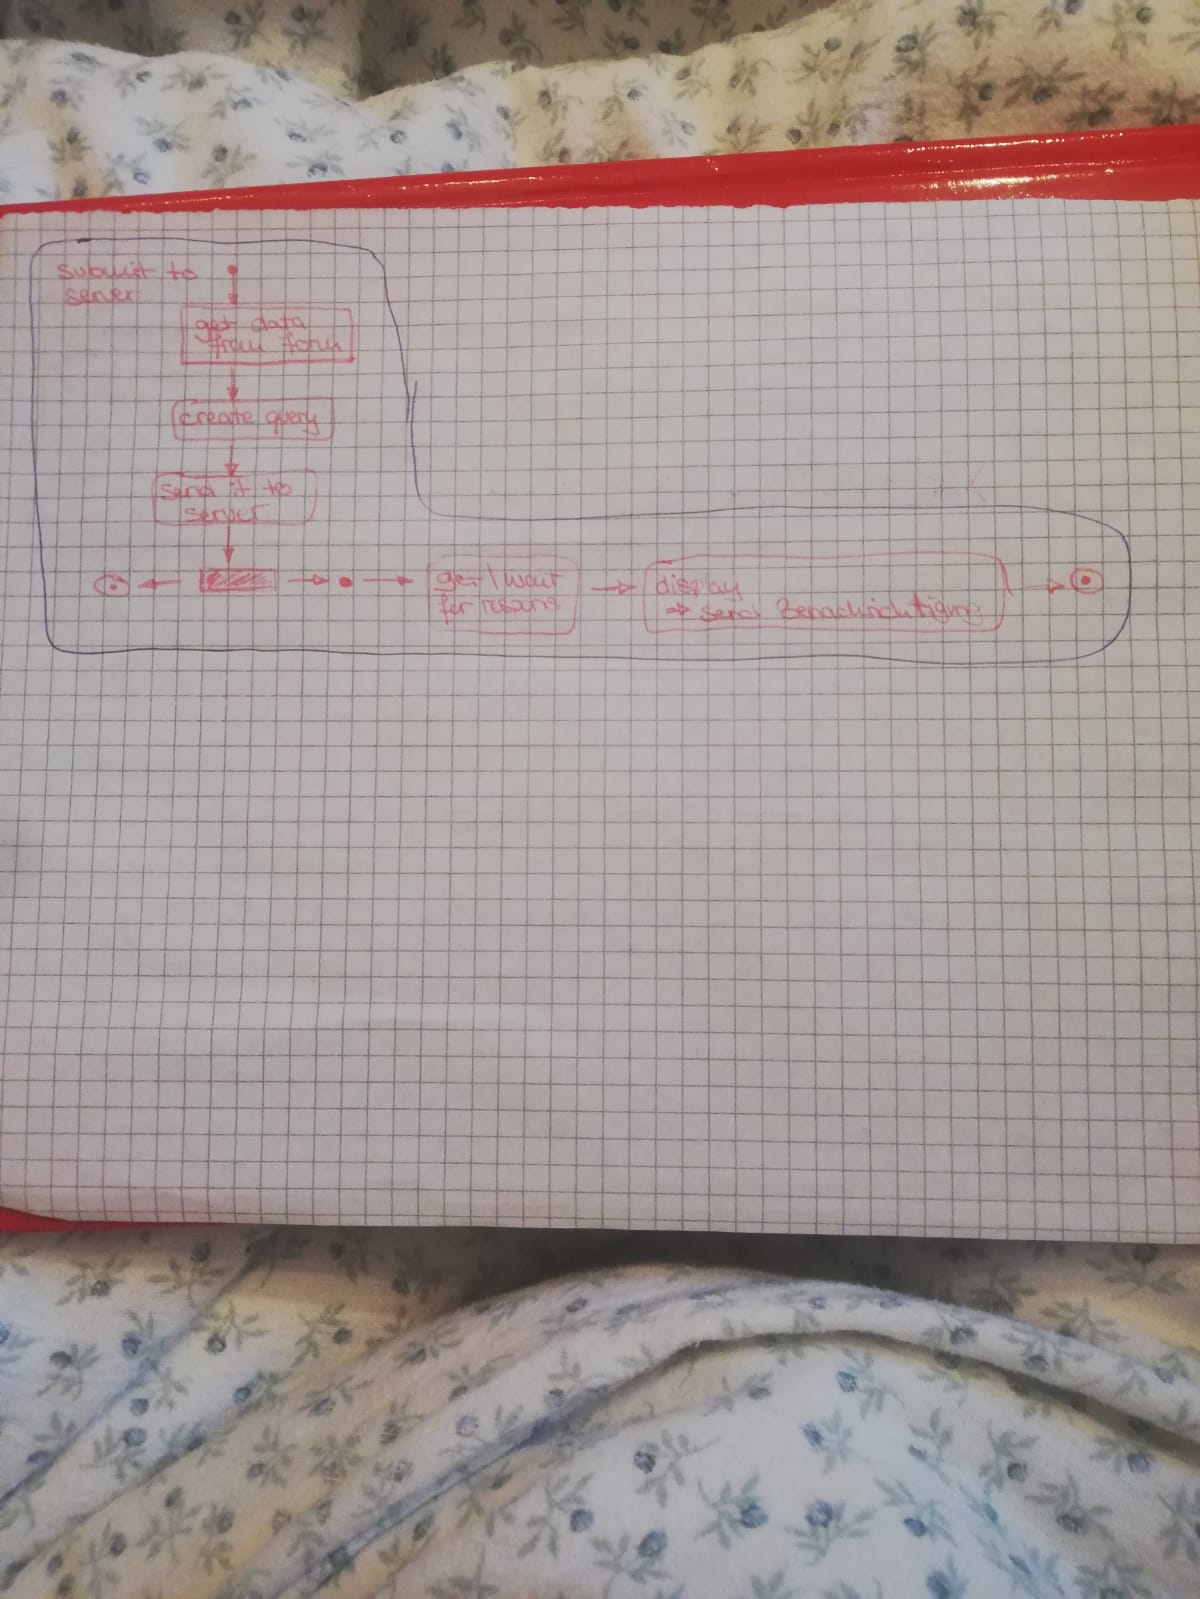 submit to
server
get data
from form
create query
send it to
server
get/wait
for
display
⇒ send Benachrichtigung